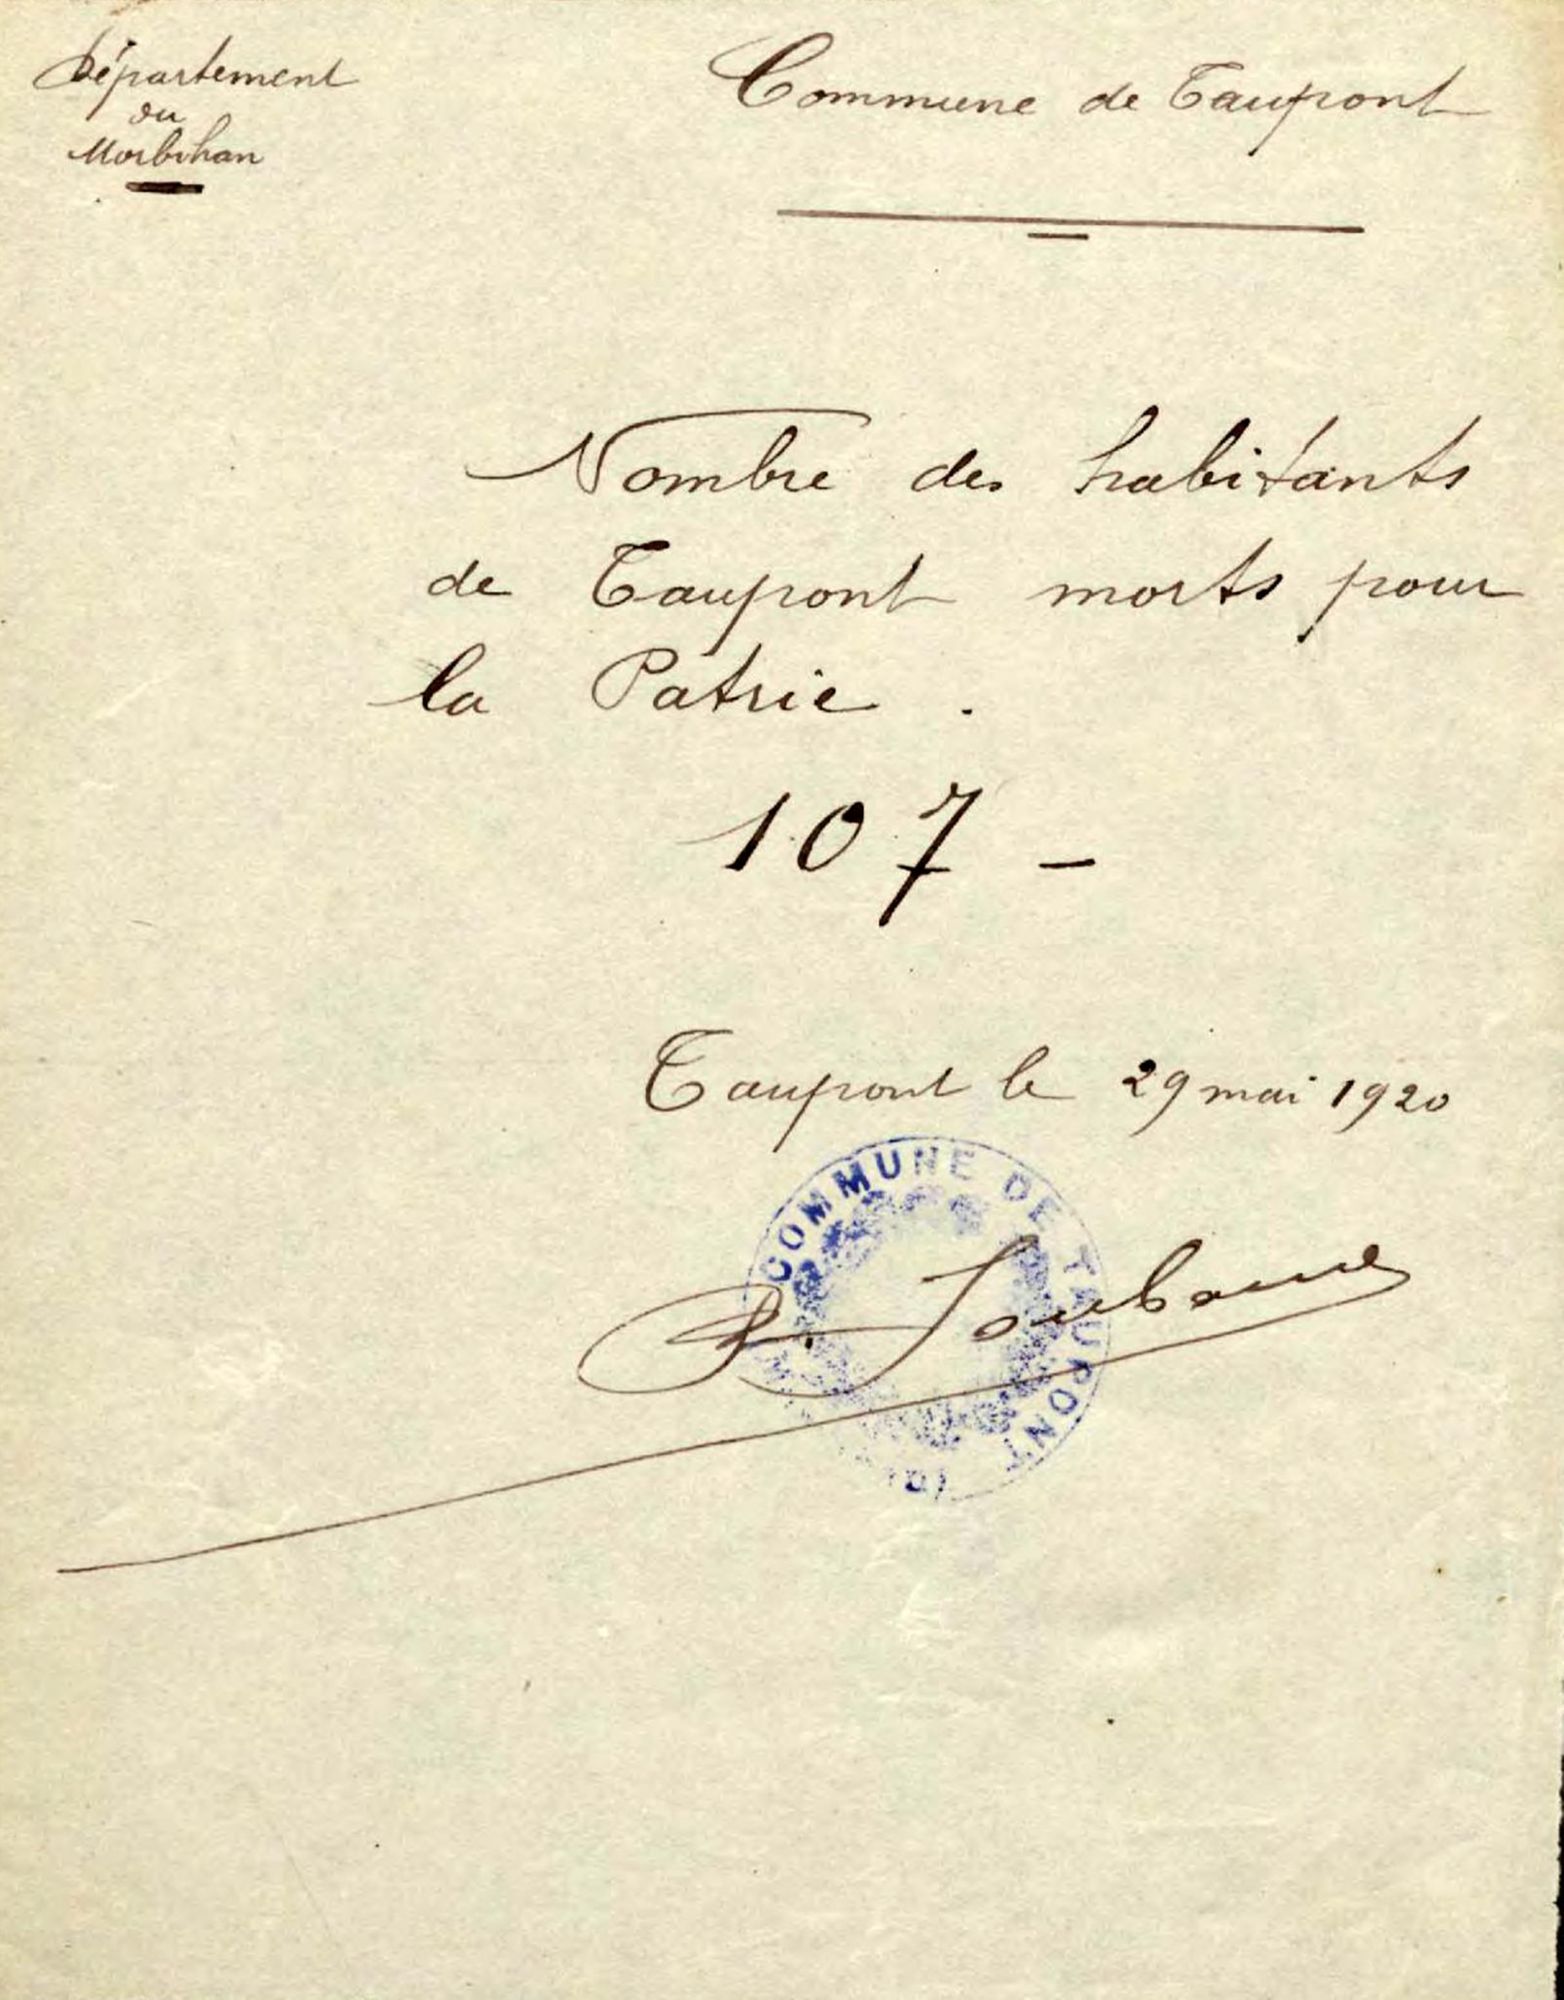 Département
du
Morbihan
Commune de Taupont
Nombre des habitants
de Taupont morts pour
la Patrie.
107 -
Taupont le 29 mai 1920
COMMUNE DE TAUPONT